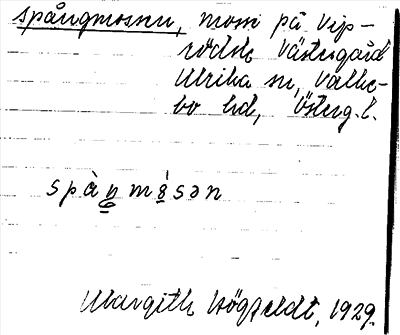 spångmossen, mosse på Vip-
rödsle Västergård
Ulrika sn, Valke-
bo hd, Österg.l.
spàŋmósən
Margith Högfeldt, 1929.